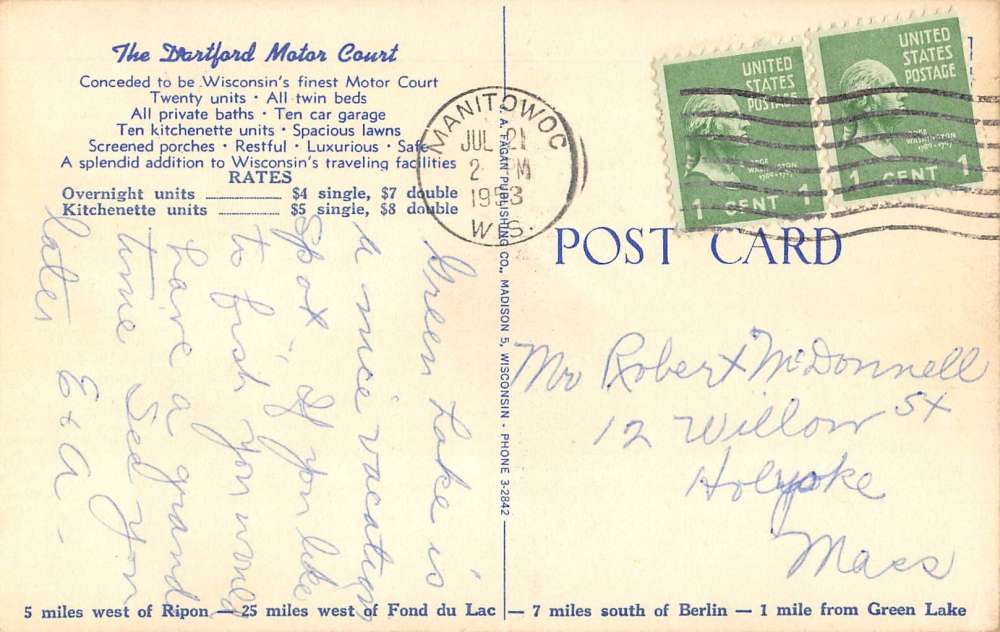 The Dartford Motor Court
Conceded to be Wisconsin's finest Motor Court
Twenty units · All twin beds
All private baths · Ten car garage
Ten kitchenette units · Spacious lawns
Screened porches · Restful · Luxurious · Safe
A splendid addition to Wisconsin's traveling facilities
RATES
Overnight units $4 single, $7 double
Kitchenette units $5 single, $8 double
Green Lake is
a nice vacation
spot, if you like
to fish you would
have a grand
time See you
later E & A -
A. FAGAN PUBLISHING CO., MADISON 5, WISCONSIN - PHONE 3-2842
MANITOWOC
JUL 21
2 PM
1953
WIS.
UNITED
STATES
POSTAGE
GEORGE
WASHINGTON
1789-1797
1 CENT 1
UNITED
STATES
POSTAGE
GEORGE
WASHINGTON
1789-1797
1 CENT 1
POST CARD
Mr Robert McDonnell
12 Willow St
Holyoke
Mass
5 miles west of Ripon — 25 miles west of Fond du Lac — 7 miles south of Berlin — 1 mile from Green Lake